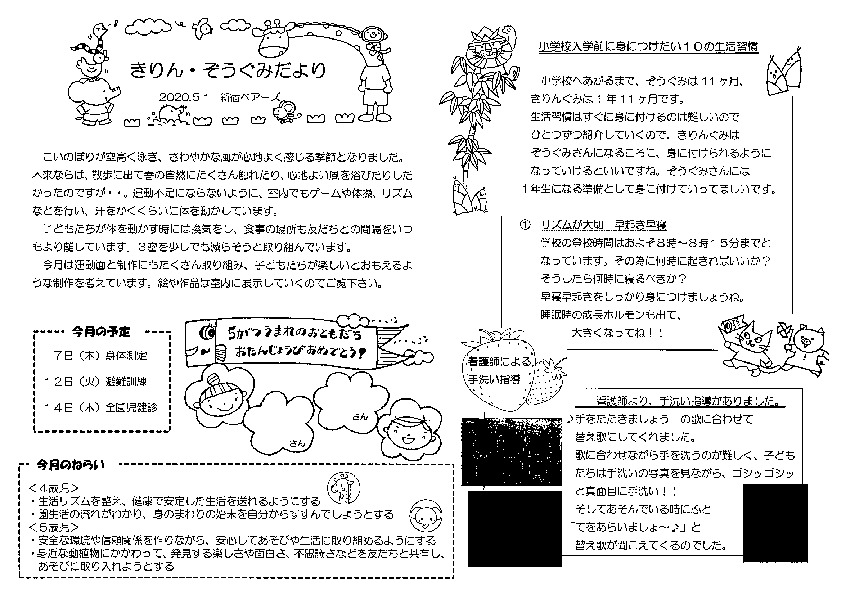 きりん・ぞうぐみだより
2020.5.1 新宿ベアーズ
こいのぼりが空高く泳ぎ、さわやかな風が心地よく感じる季節となりました。
本来ならば、散歩に出て春の自然にたくさん触れたり、心地よい風を浴びたりした
かったのですが・・。運動不足にならないように、室内でもゲームや体操、リズム
などを行い、汗をかくくらいに体を動かしています。
子どもたちが体を動かす時には換気をし、食事の場所も友だちとの間隔をいつ
もより離しています。3密を少しでも減らそうと取り組んでいます。
今月は運動面と制作にもたくさん取り組み、子どもたちが楽しいとおもえるよ
うな制作を考えています。絵や作品は室内に表示していくのでご覧下さい。
今月の予定
7日（木）身体測定
12日（火）避難訓練
14日（木）全園児健診
5がつうまれのおともだち
おたんじょうびおめでとう！
さん
さん
今月のねらい
＜4歳児＞
・生活リズムを整え、健康で安定した生活を送れるようにする
・園生活の流れがわかり、身のまわりの始末を自分からすすんでしようとする
＜5歳児＞
・安全な環境や信頼関係を作りながら、安心してあそびや生活に取り組めるようにする
・身近な動植物にかかわって、発見する楽しさや面白さ、不思議さなどを友だちと共有し、
あそびに取り入れようとする
小学校入学前に身につけたい１０の生活習慣
小学校へあがるまで、ぞうぐみは11ヶ月、
きりんぐみは1年11ヶ月です。
生活習慣はすぐに身に付けるのは難しいので
ひとつずつ紹介していくので、きりんぐみは
ぞうぐみさんになるころに、身に付けられるように
なっていけるといいですね。ぞうぐみさんには
1年生になる準備として身に付けていってほしいです。
① リズムが大切 早起き早寝
学校の登校時間はおよそ8時～8時15分までと
なっています。その為に何時に起きればいいか？
そうしたら何時に寝るべきか？
早寝早起きをしっかり身につけましょうね。
睡眠時の成長ホルモンも出て、
大きくなってね！！
看護師による
手洗い指導
看護師より、手洗い指導がありました。
♪手をたたきましょう の歌に合わせて
替え歌にしてくれました。
歌に合わせながら手を洗うのが難しく、子ども
たちは手洗いの写真を見ながら、ゴシッゴシッ
と真面目に手洗い！！
そしてあそんでいる時にふと
「てをあらいましょ～♪」と
替え歌が聞こえてくるのでした。